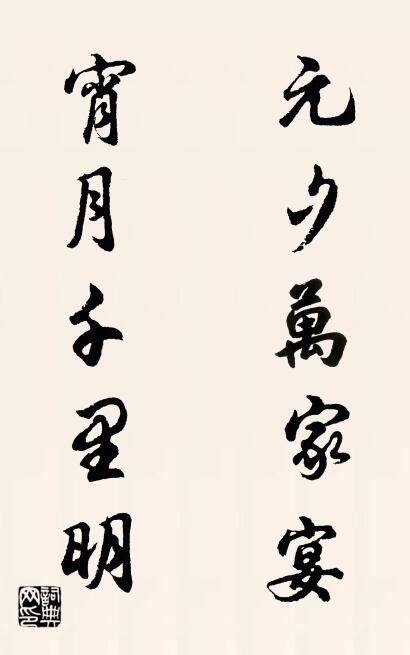 元夕萬家宴
宵月千里明
詞典網印